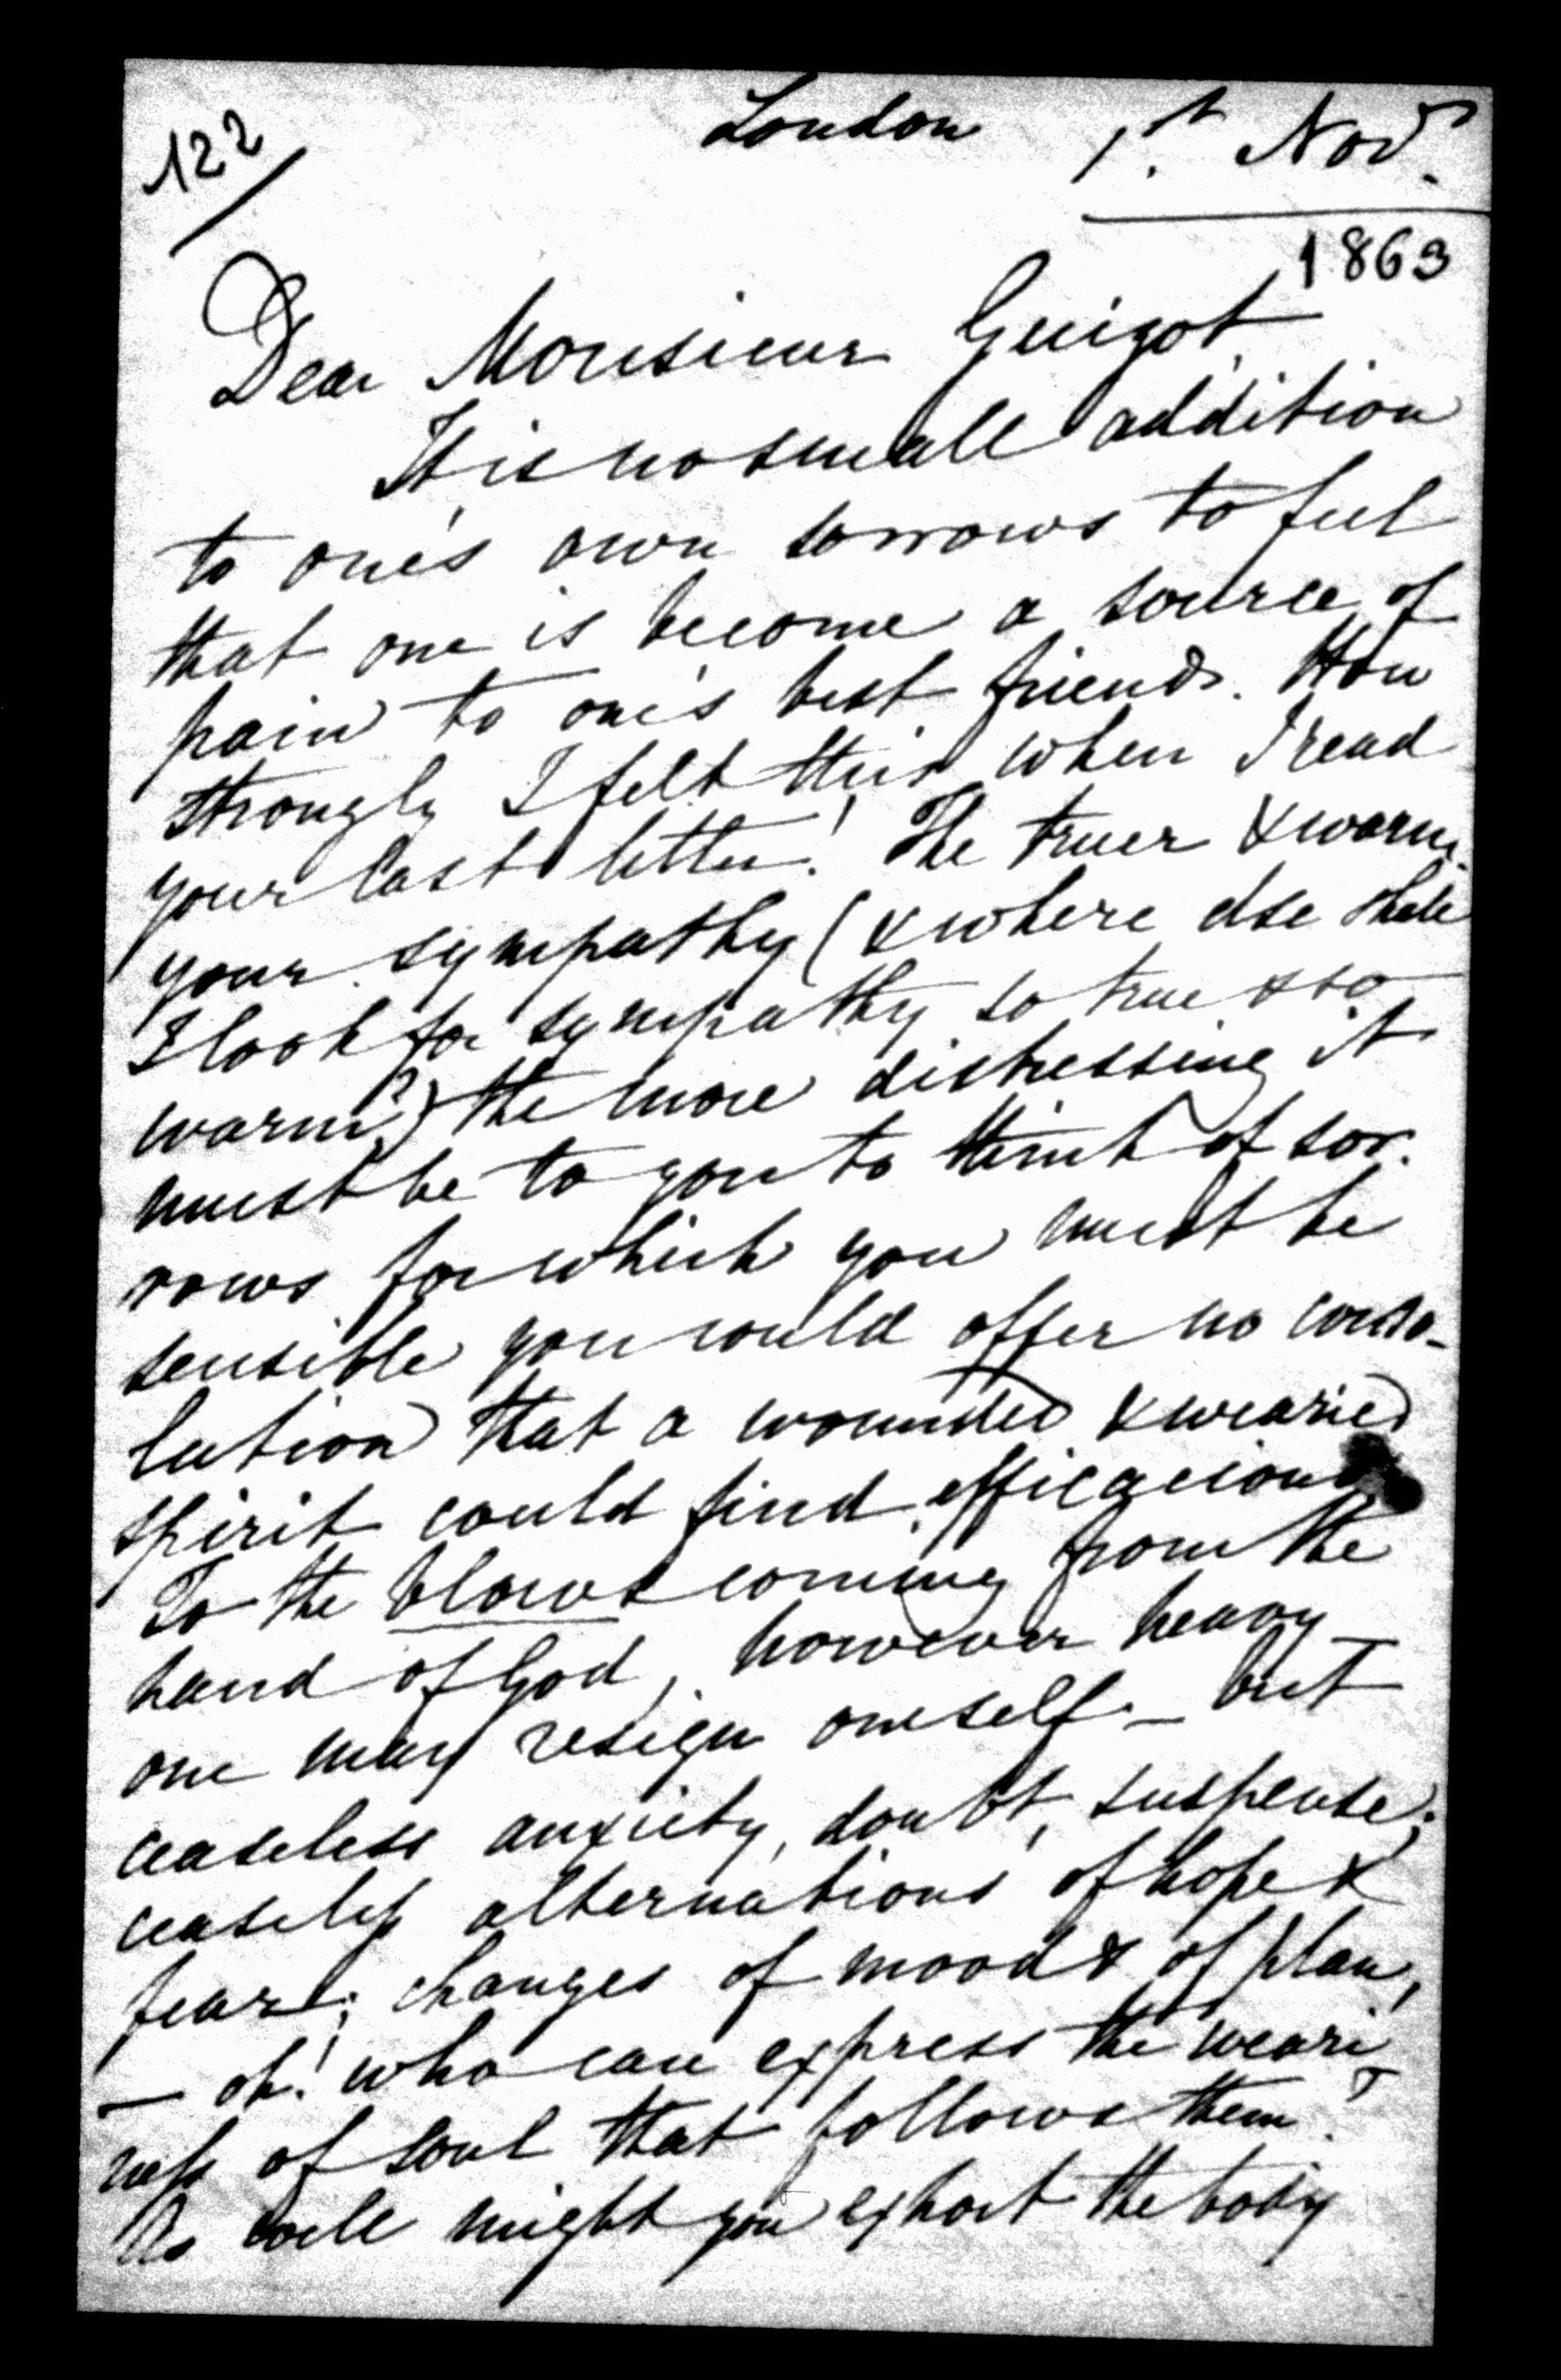 122
London 1st. Novr.
1863
Dear Monsieur Guizot,
It is no small addition
to one's own sorrows to feel
that one is become a source of
pain to one's best friends. How
strongly I felt this when I read
your last letter! The truer & warm
your sympathy (& where else shall
I look for sympathy so true & so
warm?) the more distressing it
must be to you to think of sor-
rows for which you must be
sensible you could offer no conso-
lation that a wounded & wearied
spirit could find efficacious
To the blows coming from the
hand of God, however heavy
one may resign oneself – but
ceaseless anxiety, doubt, suspense;
ceaseless alternations of hope &
fear; changes of mood & of plan,
– oh! who can express the weari
ness of soul that follows them?
As well might you exhort the body